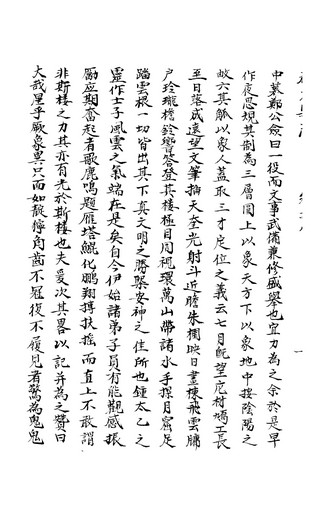 中募鄭公僉曰一役而文事武備兼修盛舉也宜力為之余於是早
作夜思規其制為三層圓上以象天方下以象地中按陰陽之
畝六其觚以象人蓋取三才定位之義云七月旣望庀材鳩工長
至日落成遠望文筆插天奎光射斗近瞻朱欄映日畫棟飛雲繡
戶玲瓏檐鈴響答登其樓極目周視環萬山帶諸水手探月窟足
踏雲根一切皆出其下真文明之勝槩安神之佳所也鍾太乙之
靈作士子風雲之氣端在是矣自今伊始諸弟子員有能觀感振
勵應期奮起者歌鹿鳴題雁塔鯤化鵬翔摶扶搖而直上不敢謂
非斯樓之力其亦有光於斯樓也夫爰次其畧以記并為之贊曰
大哉星乎厥象異只而如
角齒不冠復不履見者驚為鬼鬼